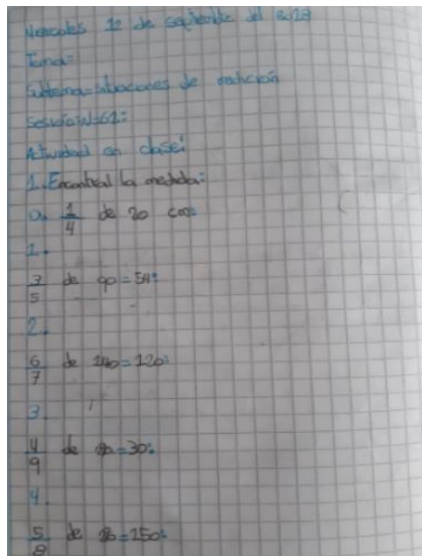 de septiembre del
Tema:
Subtema: situaciones de medición
Sesión N:62:
Actividad en clase:
1. Encontrar la medida:
a. 1/4 de 20 cm:
1.
3/5 de 90=54:
2.
6/7 de 140=120:
3.
4/9 de =30:
4.
5/8 de =150: